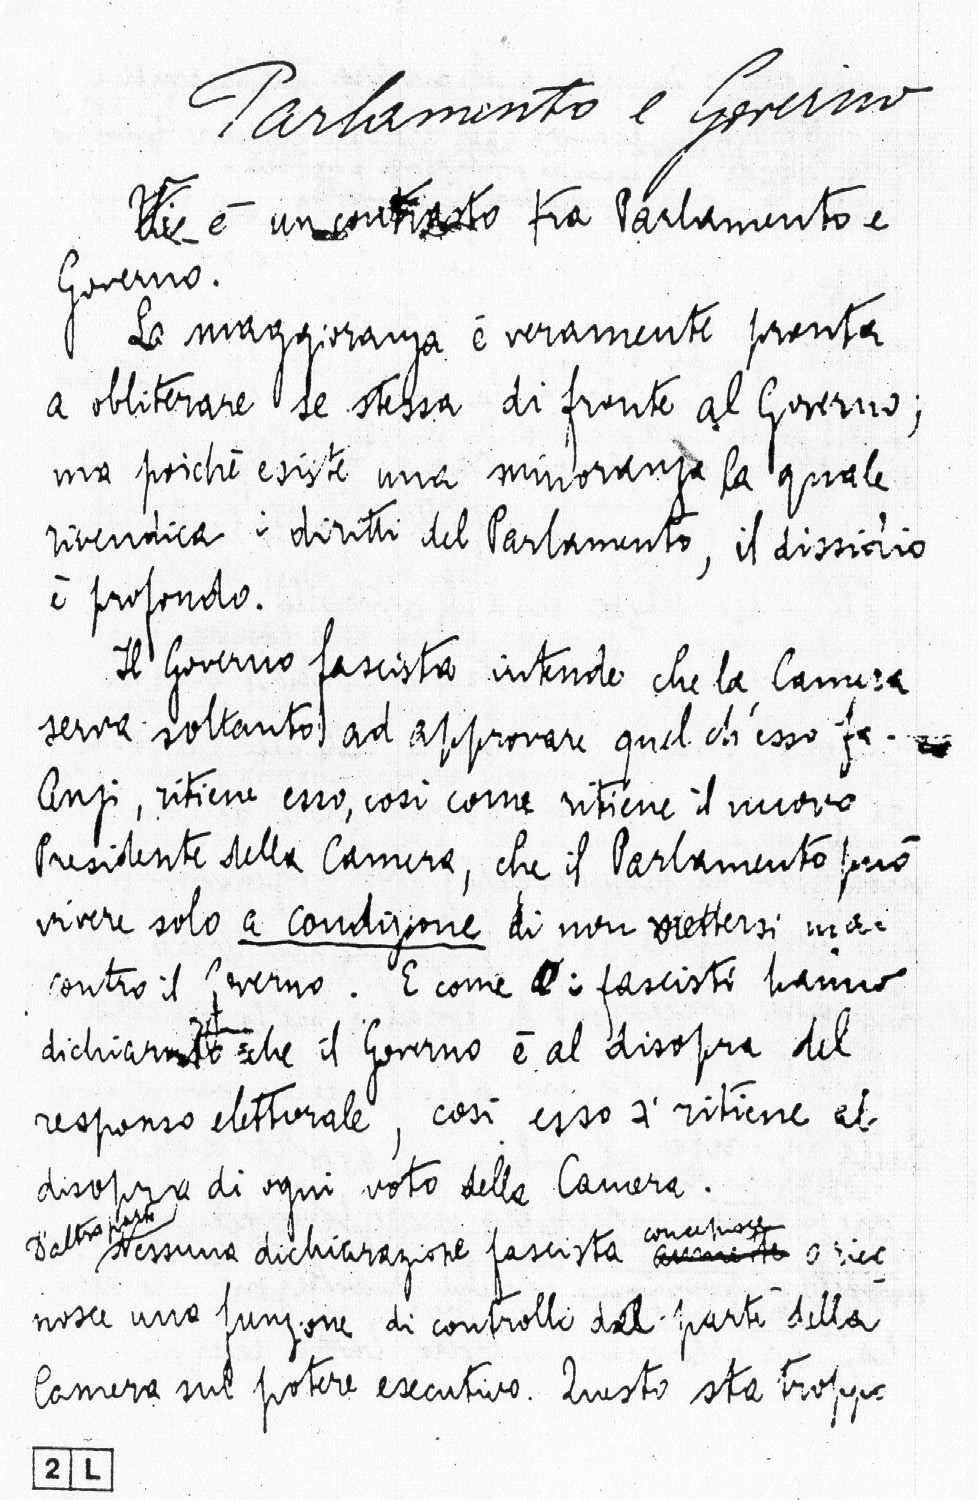 Parlamento e Governo
Vi è un contrasto tra Parlamento e
Governo.
La maggioranza è veramente pronta
a obliterare se stessa di fronte al Governo;
ma poiché esiste una minoranza la quale
rivendica i diritti del Parlamento, il dissidio
è profondo.
Il Governo fascista intende che la Camera
serva soltanto ad approvare quel ch'esso fa.
Anzi, ritiene esso, così come ritiene il nuovo
Presidente della Camera, che il Parlamento può
vivere solo a condizione di non mettersi mai
contro il Governo. E come i fascisti hanno
dichiarato che il Governo è al disopra del
responso elettorale, così esso si ritiene al
disopra di ogni voto della Camera.
D'altra parte nessuna dichiarazione fascista concepisce o rico
nosce una funzione di controlli da parte della
Camera sul potere esecutivo. Questo sta troppo
2 L